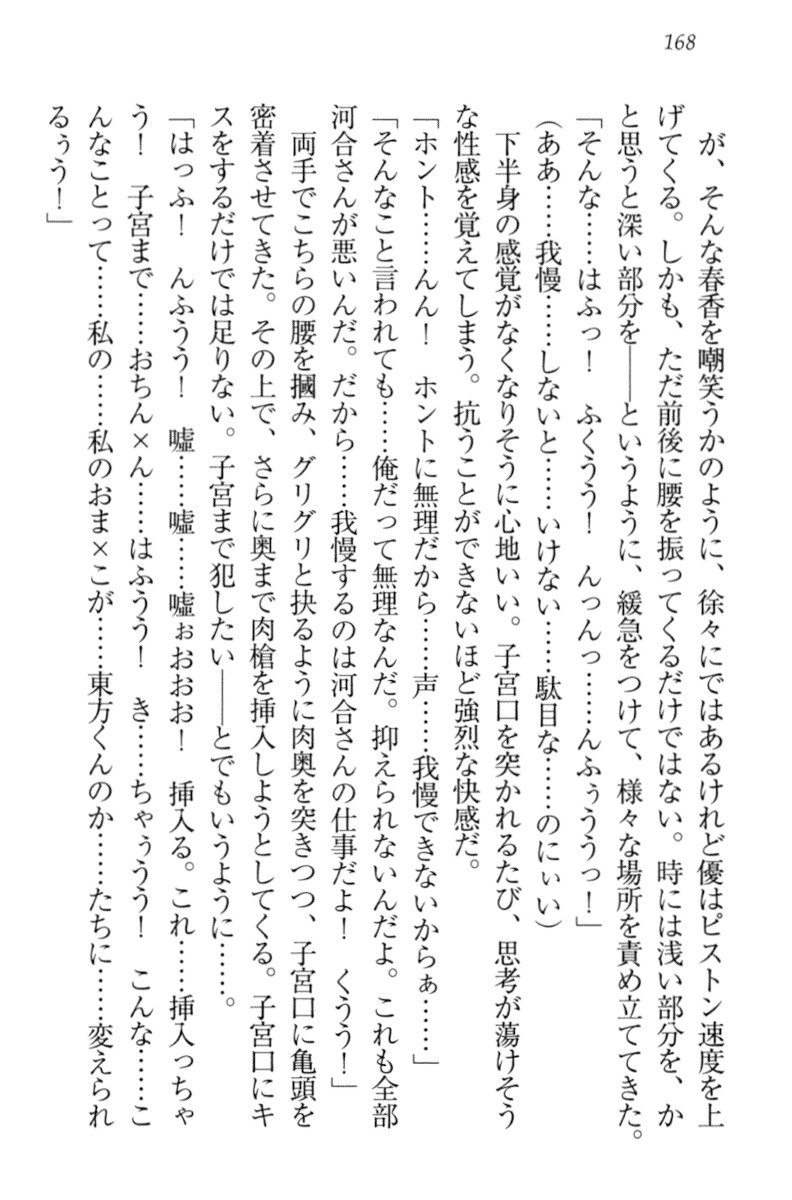 168
が、そんな春香を嘲笑うかのように、徐々にではあるけれど優はピストン速度を上
げてくる。しかも、ただ前後に腰を振ってくるだけではない。時には浅い部分を、か
と思うと深い部分を――というように、緩急をつけて、様々な場所を責め立ててきた。
「そんな……はふっ！　ふくうう！　んっんっ……んふぅううっ！」
（ああ……我慢……しないと……いけない……駄目な……のにぃい）
下半身の感覚がなくなりそうに心地いい。子宮口を突かれるたび、思考が蕩けそう
な性感を覚えてしまう。抗うことができないほど強烈な快感だ。
「ホント……んん！　ホントに無理だから……声……我慢できないからぁ……」
「そんなこと言われても……俺だって無理なんだ。抑えられないんだよ。これも全部
河合さんが悪いんだ。だから……我慢するのは河合さんの仕事だよ！　くうう！」
両手でこちらの腰を摑み、グリグリと抉るように肉奥を突きつつ、子宮口に亀頭を
密着させてきた。その上で、さらに奥まで肉槍を挿入しようとしてくる。子宮口にキ
スをするだけでは足りない。子宮まで犯したい――とでもいうように……。
「はっふ！　んふうう！　嘘……嘘……嘘ぉおおお！　挿入る。これ……挿入っちゃ
う！　子宮まで……おちん×ん……はふうう！　き……ちゃぅうう！　こんな……こ
んなことって……私の……私のおま×こが……東方くんのか……たちに……変えられ
るぅう！」